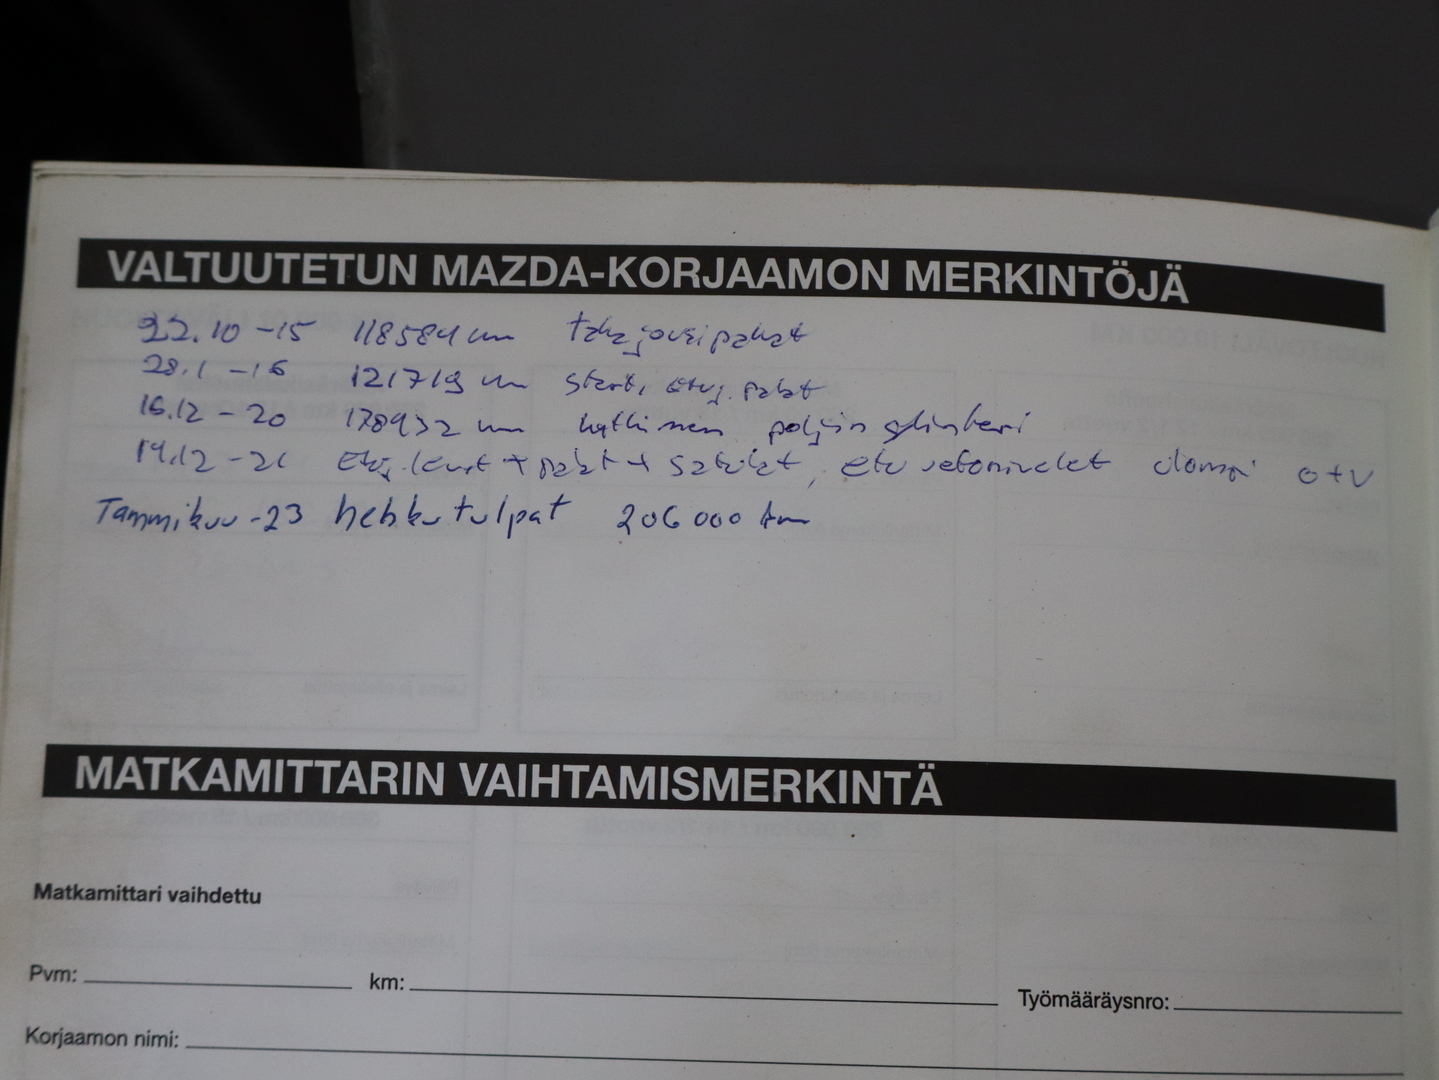 VALTUUTETUN MAZDA-KORJAAMON MERKINTÖJÄ
22.10 -15 118584 km takajousipalat
28.1 -16 121719 km start, etuj. palat
16.12 -20 178932 km kytkimen poljin sylinteri
14.12 -21 Etuj. levyt + palat + satulat, etu vetonivelet ulompi o+v
Tammikuu -23 hehkutulpat 206 000 km
MATKAMITTARIN VAIHTAMISMERKINTÄ
Matkamittari vaihdettu
Pvm: km: Työmääräysnro:
Korjaamon nimi: